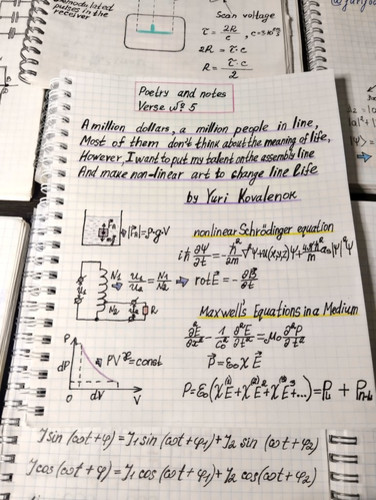 pulses in the
receiver
Scan voltage
τ = 2R/c, c=3·10⁸
2R = τ·c
R = τ·c/2
Poetry and notes
Verse № 5
A million dollars, a million people in line,
Most of them don't think about the meaning of life,
However, I want to put my talent on the assembly line
And make non-linear art to change line life
by Yuri Kovalenok
|F⃗A|=ρ·g·V
nonlinear Schrödinger equation
iħ ∂Ψ/∂t = -ħ²/2m ∇²Ψ+U(x,y,z)Ψ+4πħ²/m a₀|Ψ|²Ψ
N1 U1/U2 = N1/N2
N2 R
rotE⃗ = -∂B⃗/∂t
Maxwell's Equations in a Medium
∂²E/∂z² - 1/c₀² ∂²E/∂t² = μ₀ ∂²P/∂t²
P
dP
PV^γ=const
0 dV V
P⃗=ε₀χE⃗
P=ε₀(χ⁽¹⁾E+χ⁽²⁾E²+χ⁽³⁾E³+...)=P_L + P_n-L
J sin (ωt+φ)=J1 sin (ωt+φ1)+J2 sin (ωt+φ2)
J cos (ωt+φ)=J1 cos (ωt+φ1)+J2 cos (ωt+φ2)